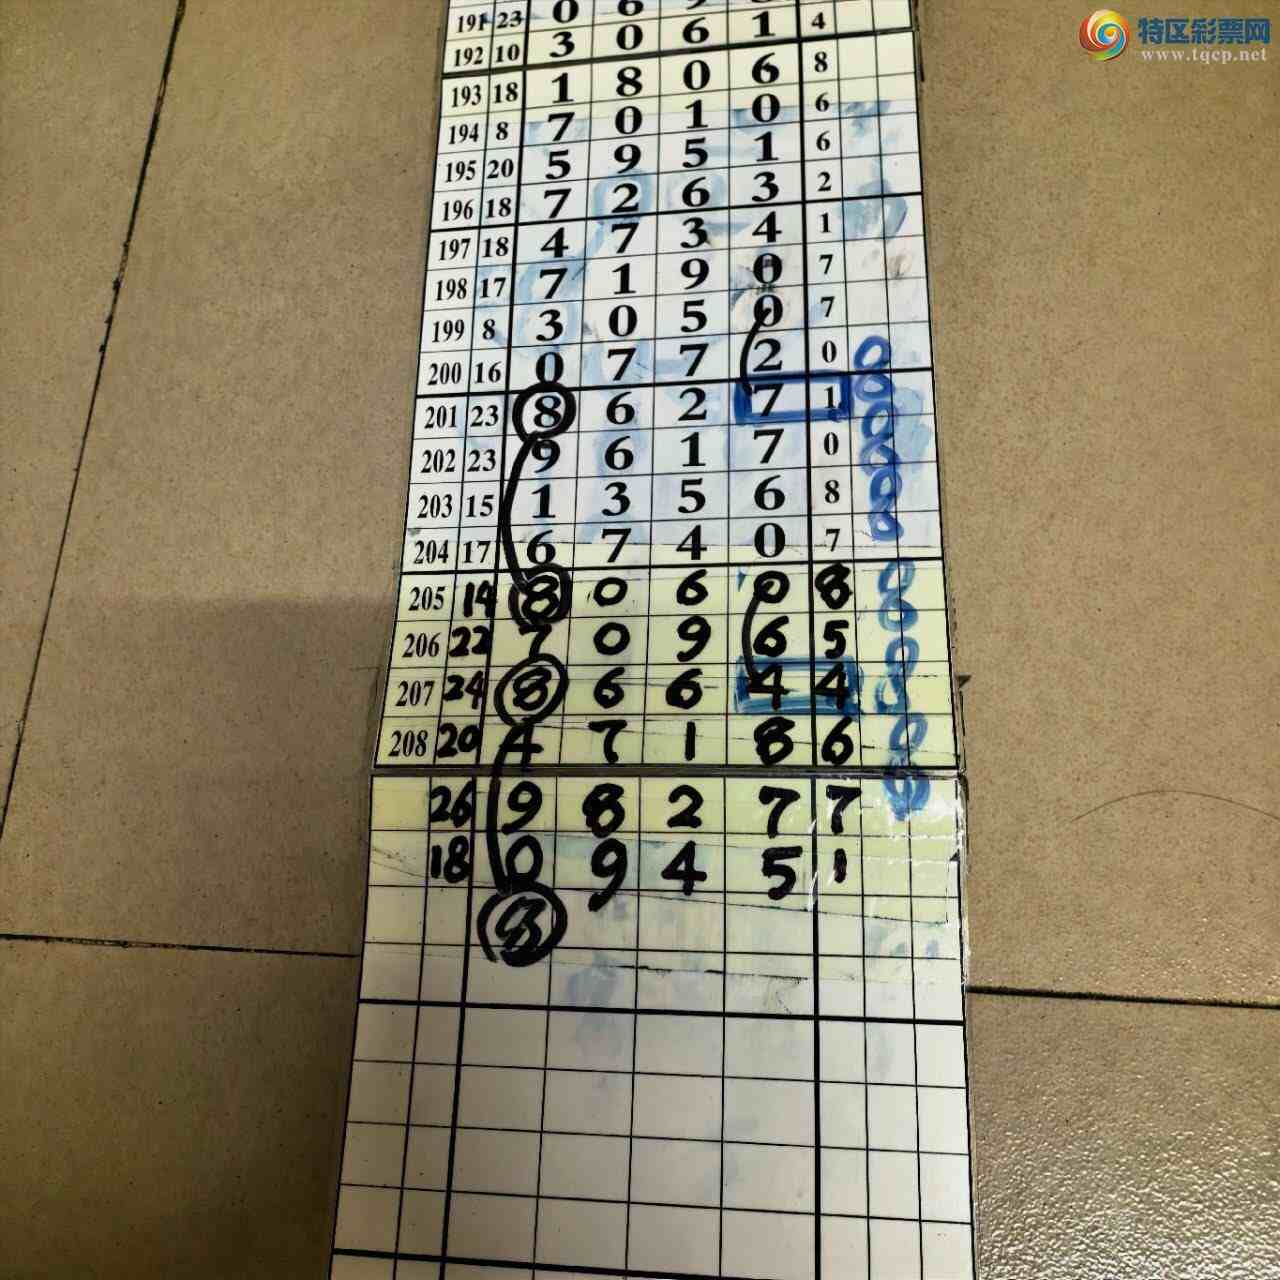 特区彩票网
www.tqcp.net
191 23 0 6 9
192 10 3 0 6 1 4
193 18 1 8 0 6 8
194 8 7 0 1 0 6
195 20 5 9 5 1 6
196 18 7 2 6 3 2
197 18 4 7 3 4 1
198 17 7 1 9 0 7
199 8 3 0 5 0 7
200 16 0 7 7 2 0
201 23 8 6 2 7 1
202 23 9 6 1 7 0
203 15 1 3 5 6 8
204 17 6 7 4 0 7
205 14 8 0 6 0 8
206 22 7 0 9 6 5
207 24 8 6 6 4 4
208 20 4 7 1 8 6
26 9 8 2 7 7
18 0 9 4 5 1
8